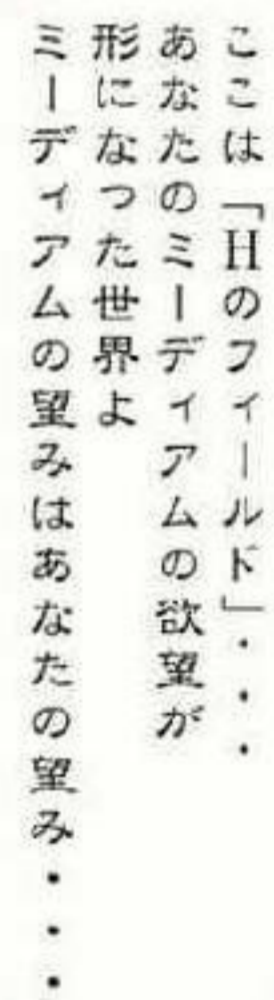 ここは「Hのフィールド」・・・
あなたのミーディアムの欲望が
形になった世界よ
ミーディアムの望みはあなたの望み・・・